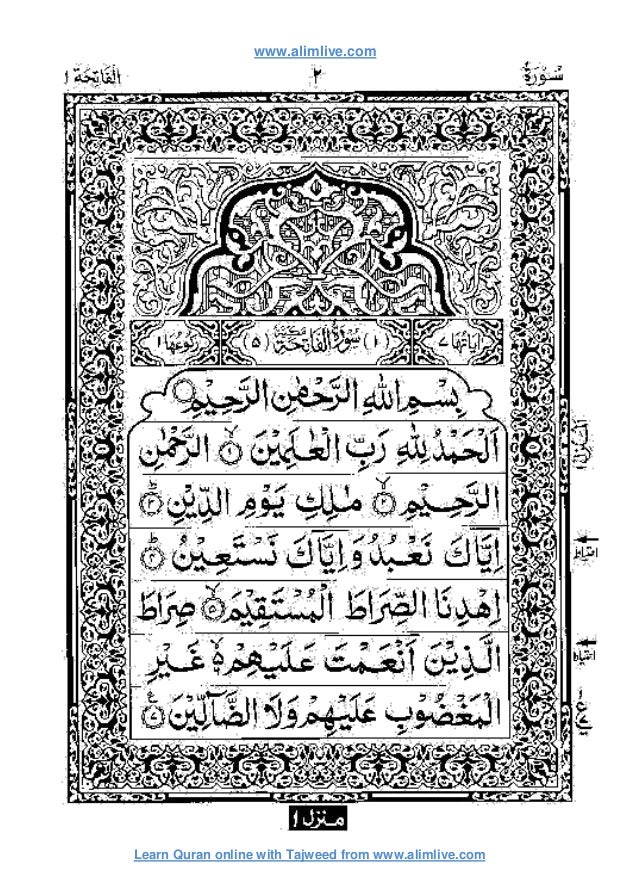 www.alimlive.com
سُوْرَةُ ٢ الْفَاتِحَة ١
اٰيَاتُهَا ٧ (١) سُوْرَةُ الْفَاتِحَةِ مَكِّيَّةٌ (٥) رُكُوْعُهَا ١
بِسْمِ اللّٰهِ الرَّحْمٰنِ الرَّحِيْمِ
اَلْحَمْدُ لِلّٰهِ رَبِّ الْعٰلَمِيْنَ ۙ١ الرَّحْمٰنِ
الرَّحِيْمِ ۙ٢ مٰلِكِ يَوْمِ الدِّيْنِ ؕ٣
اِيَّاكَ نَعْبُدُ وَ اِيَّاكَ نَسْتَعِيْنُ ؕ٤
اِهْدِنَا الصِّرَاطَ الْمُسْتَقِيْمَ ۙ٥ صِرَاطَ
الَّذِيْنَ اَنْعَمْتَ عَلَيْهِمْ ۙ۬ۙ غَيْرِ
الْمَغْضُوْبِ عَلَيْهِمْ وَلَا الضَّآلِّيْنَ ٧
احتياط
احتياط
منزل ١
Learn Quran online with Tajweed from www.alimlive.com